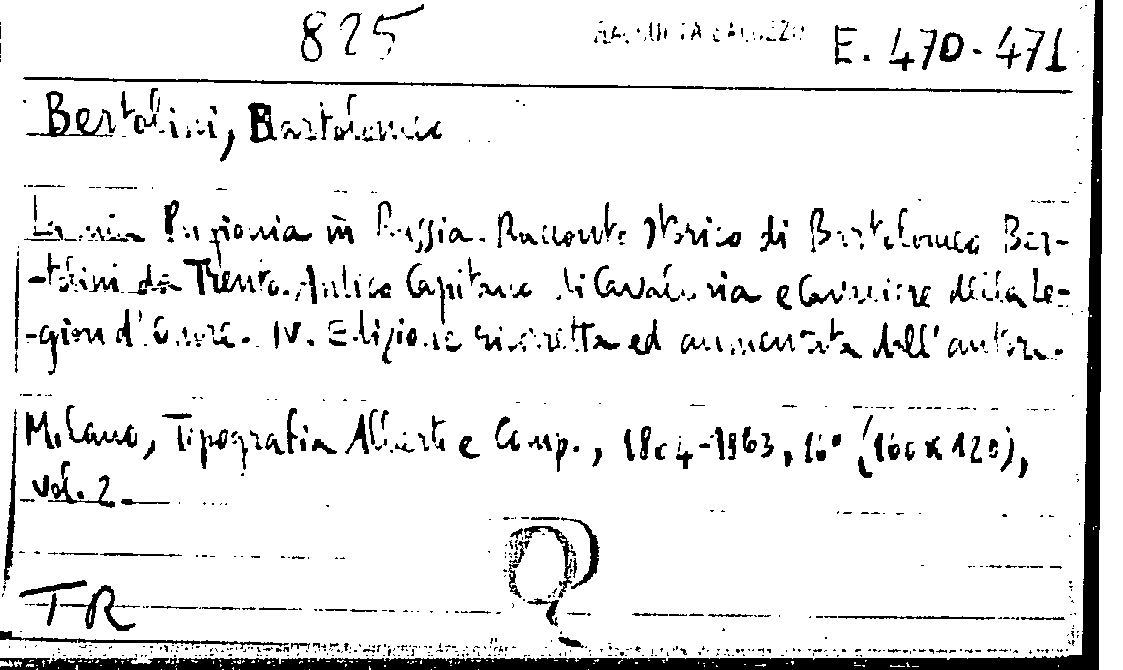 825 RACCOLTA GALUZZO E. 470-471
Bertolini, Bartolomeo
La mia Prigionia in Russia. Racconto storico di Bartolomeo Ber-
-tolini da Trento. Antico Capitano di Cavalleria e Cavaliere della Le-
-gion d'Onore. IV. Edizione ricorretta ed aumentata dall'autore.
Milano, Tipografia Alberti e Comp., 1804-1963, 16° (160 x 120),
vol. 2.
TR